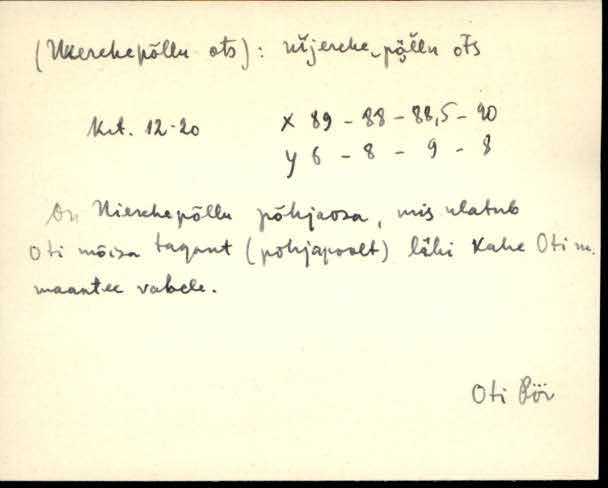 (Niierchepõllu ots): niierche-põllu ots
Krt. 12-20 x 89 - 88 - 88,5 - 90
y 6 - 8 - 9 - 8
On Hierchepõllu põhjaosa, mis ulatub
Oti mõisa tagant (põhjapoolt) läbi kahe Oti m.
maantee vahele.
Oti Pör